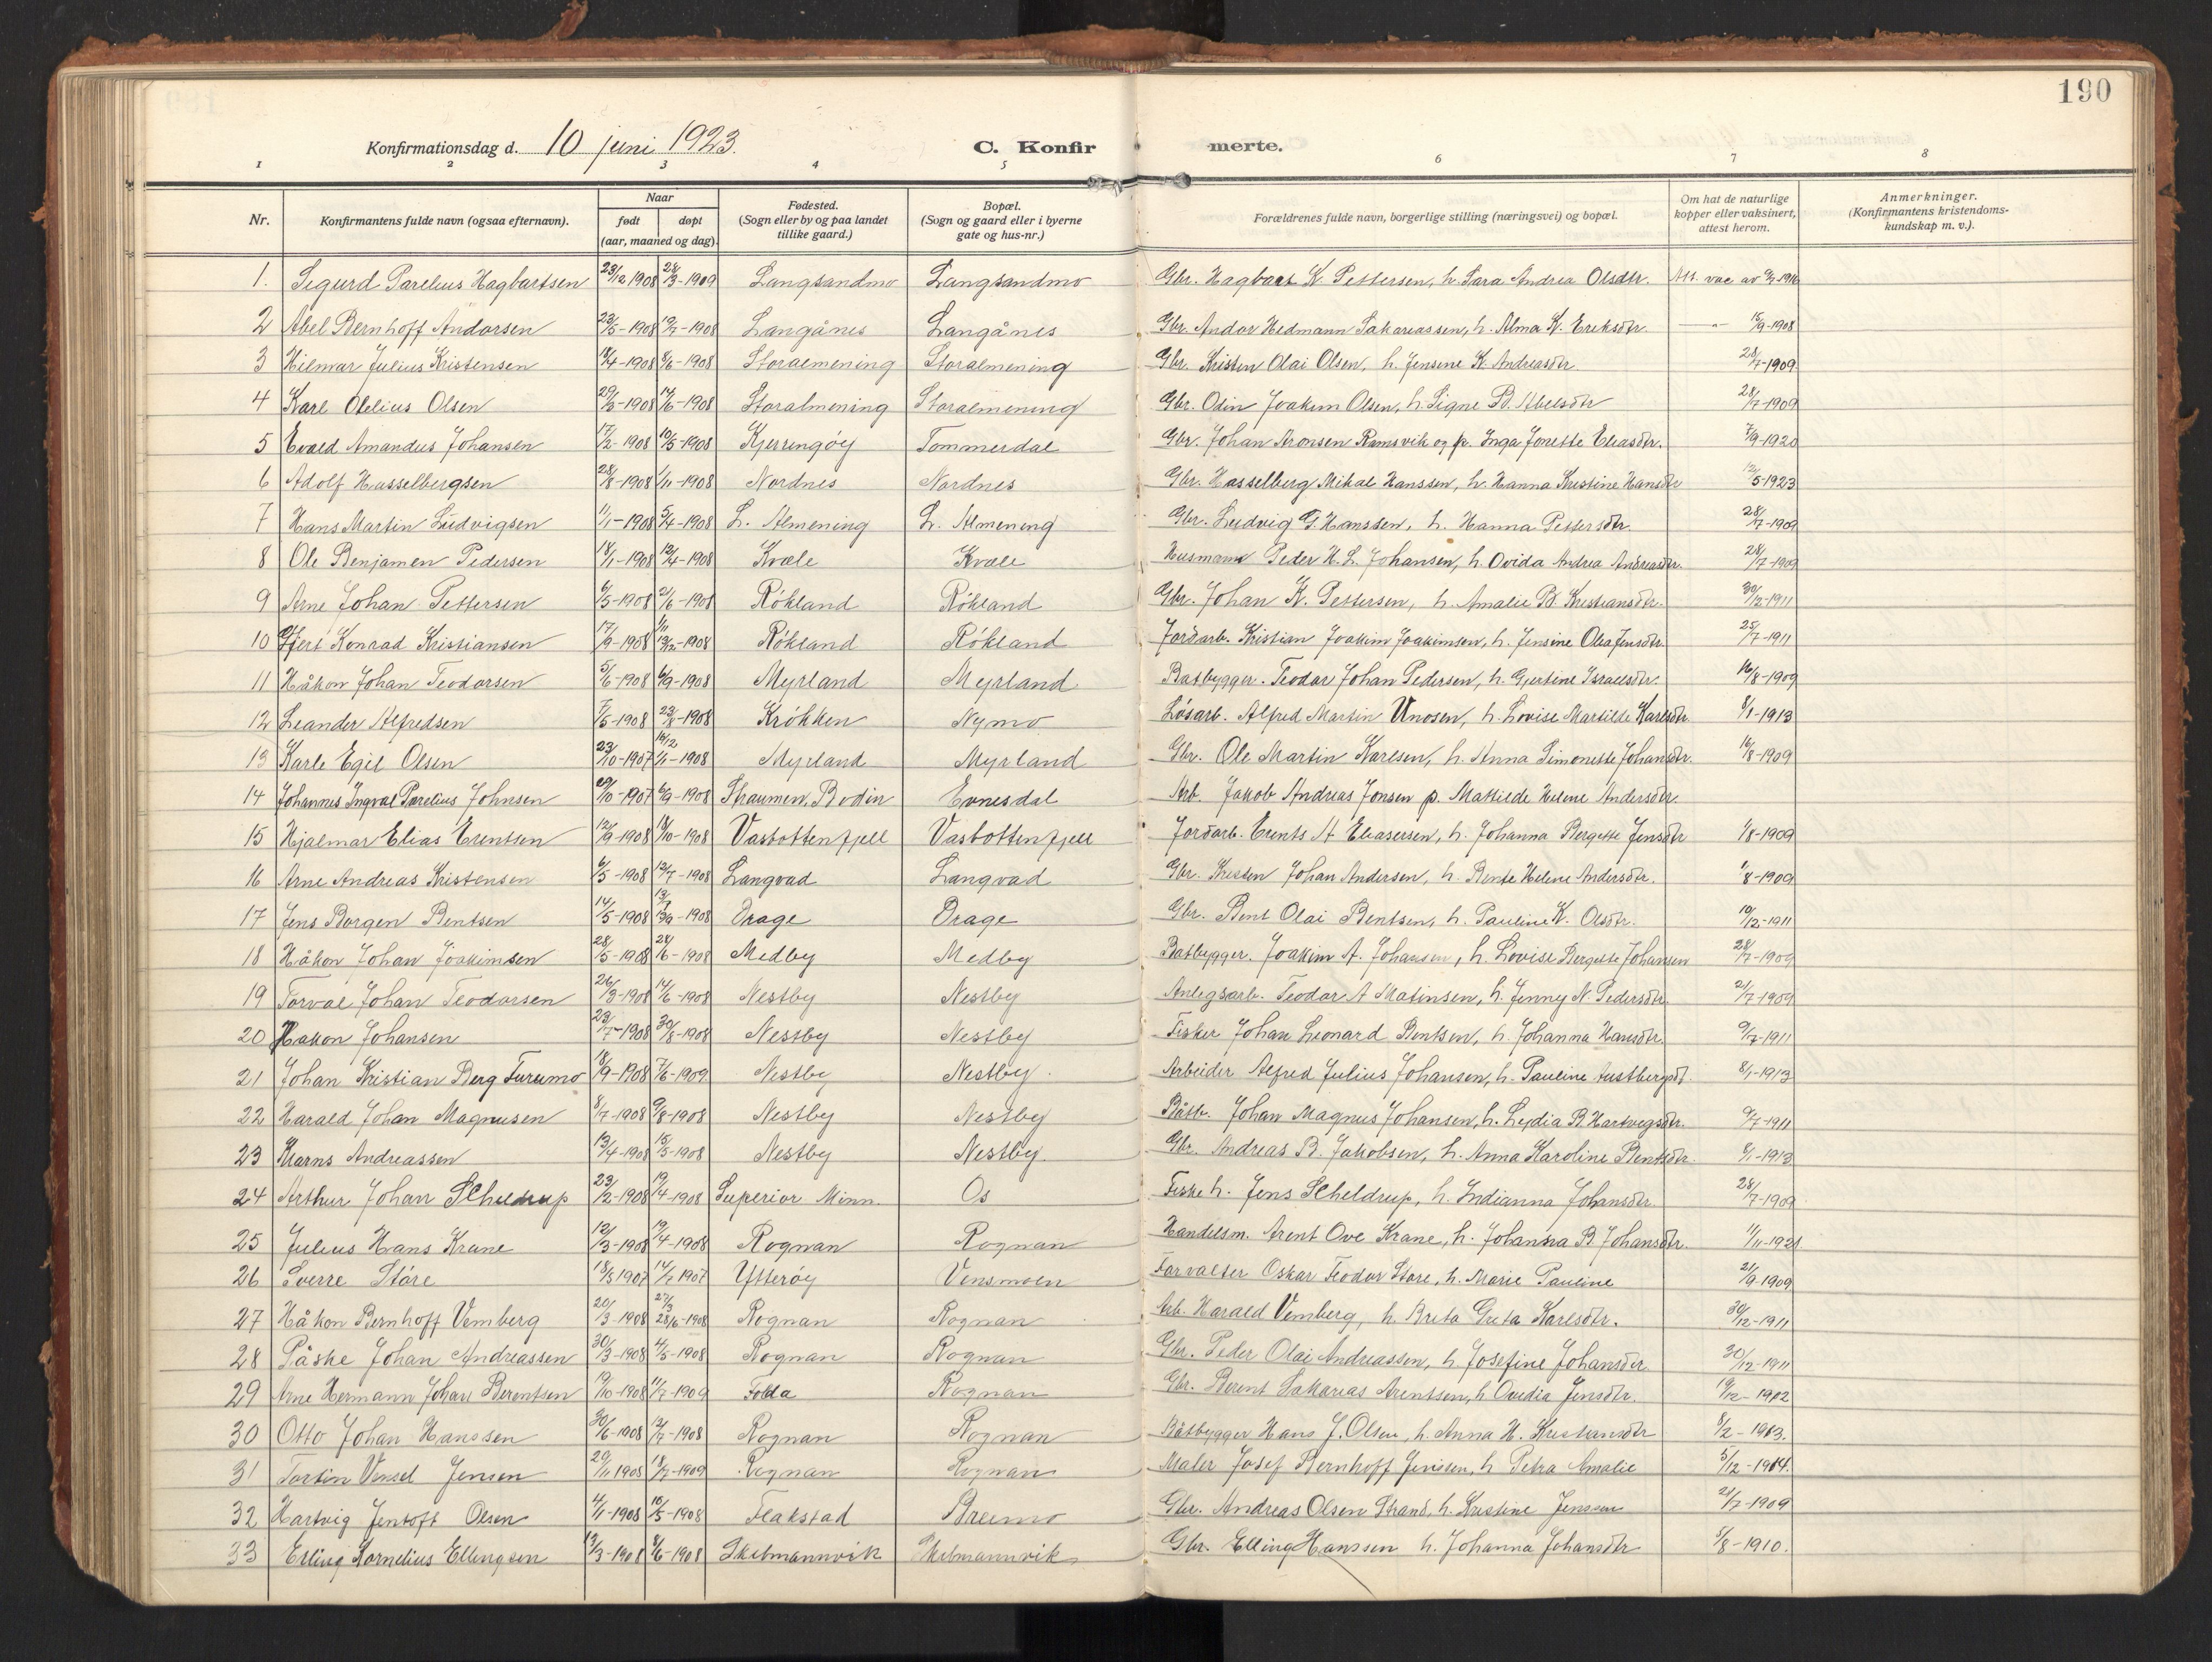 190
Konfirmationsdag d. 10 juni 1923.
C. Konfirmerte.
1 2 3 4 5 6 7 8
Nr.
Konfirmantens fulde navn (ogsaa efternavn).
Naar
født døpt
(aar, maaned og dag).
Fødested.
(Sogn eller by og paa landet
tillike gaard.)
Bopæl.
(Sogn og gaard eller i byerne
gate og hus-nr.)
Forældrenes fulde navn, borgerlige stilling (næringsvei) og bopæl.
Om hat de naturlige
kopper eller vaksinert,
attest herom.
Anmerkninger.
(Konfirmantens kristendoms-
kundskap m. v.).
1. Sigurd Parelius Hagbartsen 23/12 1908 28/3-1909 Langsandmo Langsandmo Gbr. Hagbart K. Pettersen, h. Sara Andrea Olsdtr. Att. vac av
2 Abel Bernhoff Andorsen 23/5-1908 19/7-1908 Langånes Langånes Gbr. Andor Hedmann Sakariassen, h. Alma K. Eriksdtr. — " 15/9-1908
3 Hilmar Julius Kristensen 18/4-1908 8/6-1908 Storalmening Storalmening Gbr. Kristen Olai Olsen, h. Jensine K. Andreasdtr. 28/7-1909
4 Karl Olelius Olsen 29/3-1908 14/6-1908 Storalmening Storalmening Gbr. Odin Joakim Olsen, h. Signe B. Abelsdtr 28/7-1909
5 Evald Amandus Johansen 17/2-1908 10/5-1908 Kjerringøy Tommerdal Gbr. Johan Aronsen Ramsvik og p. Inga Jonette Eliasdtr. 7/9-1920
6 Adolf Hasselbergsen 28/8-1908 1/11-1908 Nordnes Nordnes Gbr. Hasselberg Mikal Hanssen, h. Hanna Kristine Hansdtr 12/5-1923
7 Hans Martin Ludvigsen 11/1-1908 5/4-1908 L. Almening L. Almening Gbr. Ludvig G. Hanssen, h. Hanna Pettersdtr. 28/7-1909
8 Ole Benjamen Pedersen 18/1-1908 12/4-1908 Kvæle Kvæle Husmann Peder H. L. Johansen, h. Ovida Andrea Andreasdtr. 28/7-1909
9 Arne Johan Pettersen 6/5-1908 21/6-1908 Røkland Røkland Gbr. Johan K. Pettersen, h. Amalie B. Kristiansdtr. 30/12-1911
10 Konrad Kristiansen 17/9-1908 1/11 13/12-1908 Røkland Røkland Jordarb. Kristian Joakim Joakimsen, h. Jensine Olea Jensdtr. 25/7-1911
11 Håkon Johan Teodorsen 5/6-1908 6/9-1908 Myrland Myrland Båtbygger. Teodor Johan Pedersen, h. Gjertine Israelsdtr. 16/8-1909
12 Leander Alfredsen 7/5-1908 23/8-1908 Krøkken Nymo Løsarb. Alfred Martin Unosen, h. Lovise Martilde Karlsdtr. 8/1-1913
13 Karle Egil Olsen 23/10-1907 16/12 1/1-1908 Myrland Myrland Gbr. Ole Martin Karlsen, h. Anna Simonette Johansdtr. 16/8-1909
14 Johannes Ingval Parelius Johnsen 29/10-1907 6/9-1908 Straumen, Bodin Evnesdal Arb. Jakob Andreas Jonsen p. Mathilde Helene Andersdtr.
15 Hjalmar Elias Erentsen 12/9-1908 18/10-1908 Vasbottenfjell Vasbottenfjell Jordarb. Erents A Eliasersen, h. Johanna Bergette Jensdtr 1/8-1909
16 Arne Andreas Kristensen 6/5-1908 12/7-1908 Langvad Langvad Gbr. Kristen Johan Andersen, h. Bente Helene Andersdtr. 1/8-1909
17 Jens Borgen Bentsen 14/5-1908 Drage Drage Gbr. Bent Olai Bentsen, h. Pauline K. Olsdtr. 10/12-1911
18 Håkon Johan Joakimsen 28/5-1908 28/6-1908 Medby Medby Båtbygger. Joakim A. Johansen, h. Lovise Bergette Johansen 28/7-1909
19 Torval Johan Teodorsen 26/3-1908 14/6-1908 Nestby Nestby Anlegsarb. Teodor A Matinsen, h. Jenny N. Pedersdtr. 21/7-1909
20 Hakon Johansen 23/7-1908 30/8-1908 Nestby Nestby Fisker Johan Leonard Bentsen, h. Johanna Hansdtr. 9/7-1911
21 Johan Kristian Berg Furumo 18/9-1908 7/6-1909 Nestby Nestby. Arbeider Alfred Julius Johansen, h. Pauline Austbergsdt. 8/1-1913
22 Harald Johan Magnusen 8/7-1908 9/8-1908 Nestby Nestby Båtb. Johan Magnus Johansen, h. Lydia B. Hartvigsdtr. 9/7-1911
23 Klarns Andreassen 13/4-1908 15/5-1908 Nestby Nestby. Gbr. Andreas B. Jakobsen, h. Anna Karoline Bentsdtr. 8/1-1913
24 Arthur Johan Scheldrup 23/2-1908 19/4-1908 Superior Minn. Os Fiskeh. Jens Scheldrup, h. Indianna Johansdtr. 28/7-1909
25 Julius Hans Krane 12/3-1908 19/4-1908 Rognan Rognan Handelsm. Arent Ove Krane, h. Johanna B. Johansdtr. 11/11-1921.
26 Sverre Støre 18/5 1907 14/7 1907 Ytterøy Vensmoen Forvalter Oskar Teodor Støre, h. Marie Pauline 21/9-1909
27 Håkon Bernhoff Vemberg 20/3-1908 27/3 28/6-1908 Rognan Rognan Arb. Harald Vemberg, h. Brita Greta Karlsdtr. 30/12-1911
28 Påske Johan Andreassen 30/3-1908 4/5-1908 Rognan Rognan Gbr. Peder Olai Andreassen, h. Josefine Johansdtr 30/12-1911
29 Arne Hermann Johan Berentsen 19/10-1908 11/7-1909 Folda Rognan Gbr. Berent Sakarias Arentsen, h. Ovedia Jensdtr. 19/12-1902
30 Otto Johan Hanssen 30/6-1908 12/7-1908 Rognan Rognan Båtbygger Hans J. Olsen, h. Anna H. Kristiansdtr 8/2-1913.
31 Torstin Vensel Jensen 29/11 1908 18/7-1909 Rognan Rognan Maler Josef Bernhoff Jenssen, h. Petra Amalie 5/12-1914.
32 Hartvig Jentoft Olsen 4/1-1908 10/5-1908 Flakstad Breimo Gbr. Andreas Olsen Strand, h. Kristine Jensen 21/7-1909
33 Erling Kornelius Ellingsen 13/3-1908 8/6-1908 Skilmannvik Skilmannvik Gbr. Elling Hanssen h. Johanna Johansdtr 5/8-1910.